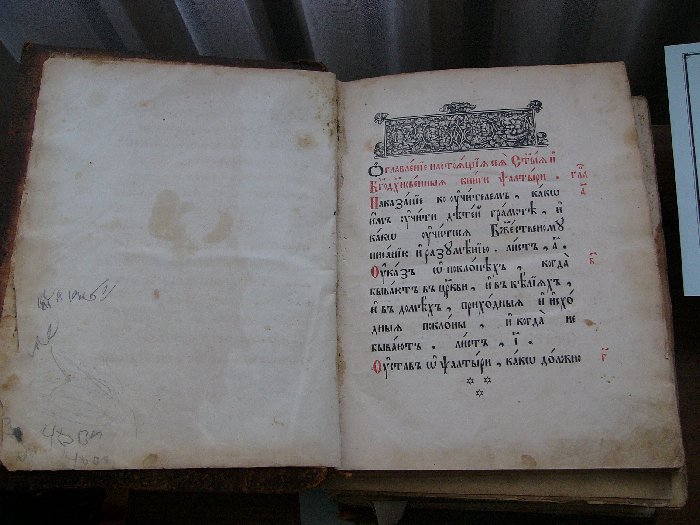 Ѻглавле́нїе настоѧ́щїѧ сеѧ̀ Ст҃ы́ѧ и҆
Бг҃одх҃нове́нныѧ кни́ги ѱалты́ри . гла
Наказа́нїе ко ᲂу҆чи́телемъ , ка́кѡ а҃
и҆́мъ ᲂу҆чи́ти дѣте́й гра́мотѣ , и҆
ка́кѡ ᲂу҆чи́тисѧ Бж҃е́ственому
писа́нїю и҆ разумѣ́нїю . ли́стъ , а҃ .
Оу҆ка́зъ ѡ҆ покло́нѣхъ , когда̀ в҃
быва́ютъ въ цр҃кви , и҆ въ ке́лїѧхъ ,
и҆ въ домѣ́хъ , прихо́дныѧ и҆ и҆схо́
дныѧ покло́ны , и҆ когда̀ не
быва́ютъ . ли́стъ , і҃ .
Оу҆ста́въ ѡ҆ ѱалты́ри , ка́кѡ до́лжно г҃